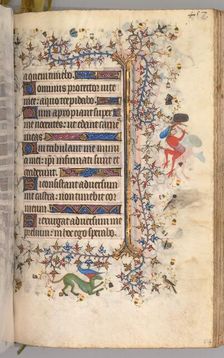 aquem timebo.
Dominus protector vite
mee: aquo trepidabo.
Dum apropiant super
me nocentes: ut edant carnes
meas
Qui tribulant me inimi
ci mei: ipsi infirmati sunt et
ceciderunt.
Si consistant adversum
me castra: non timebit cor
meum.
Si exurgat adversum me
prelium: in hoc ego spera